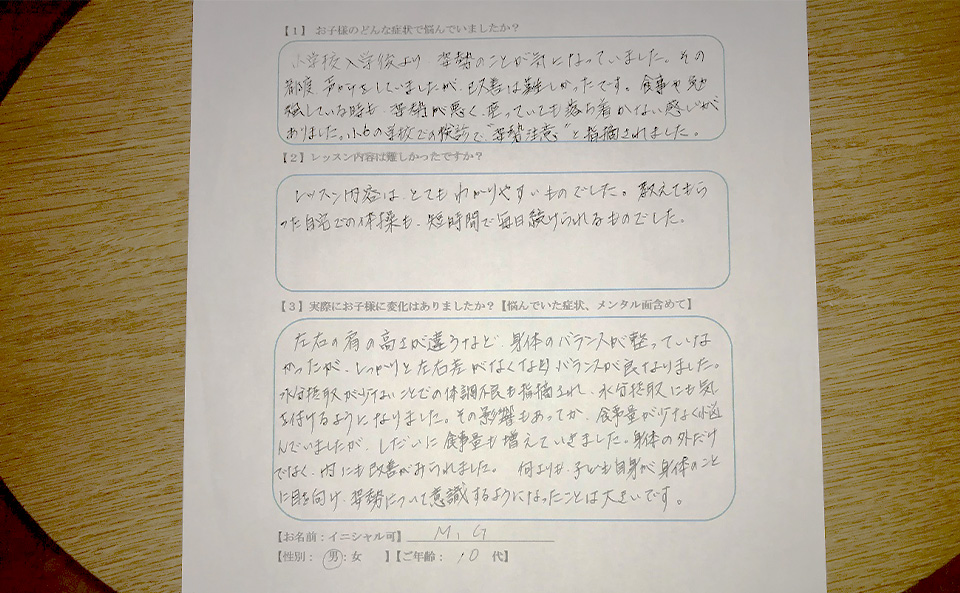 【1】 お子様のどんな症状で悩んでいましたか？
小学校入学後より 姿勢のことが気になっていました。その
都度 声かけをしていましたが、改善は難しかったです。食事や勉
強している時も、姿勢が悪く、座っていても落ち着かない感じが
ありました。小5の学校での検診で"姿勢注意"と指摘されました。
【2】レッスン内容は難しかったですか？
レッスン内容は、とてもわかりやすいものでした。教えてもら
った自宅での体操も、短時間で毎日続けられるものでした。
【3】実際にお子様に変化はありましたか？【悩んでいた症状、メンタル面含めて】
左右の肩の高さが違うなど、身体のバランスが整っていな
かったが、しっかりと左右差がなくなりバランスが良くなりました。
水分摂取が少ないことでの体調不良も指摘され、水分摂取にも気
を付けるようになりました。その影響もあってか、食事量が少なく悩
んでいましたが、しだいに食事量も増えていきました。身体の外だけ
でなく、内にも改善がみられました。 何よりも、子ども自身が身体のこと
に目を向け、姿勢について意識するようになったことは大きいです。
【お名前：イニシャル可】 M, G
【性別： 男：女 】【ご年齢： 10 代】